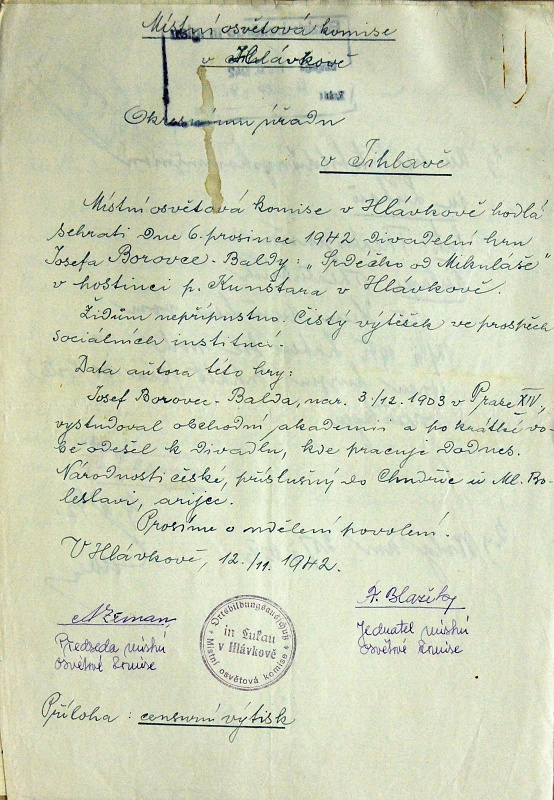 Místní osvětová komise
v Hlávkově
Okresnímu úřadu
v Jihlavě
Místní osvětová komise v Hlávkově hodlá
sehrati dne 6. prosince 1942 divadelní hru
Josefa Borovce-Baldy: „Srdéčko od Mikuláše"
v hostinci p. Kunstara v Hlávkově.
Židům nepřípustno. Čistý výtěžek ve prospěch
sociálních institucí.
Data autora této hry:
Josef Borovec-Balda, nar. 3./12. 1903 v Praze XIV,
vystudoval obchodní akademii a po krátké do-
bě odešel k divadlu, kde pracuje dodnes.
Národnosti české, příslušný do u Ml. Bo-
leslavi, arijec.
Prosíme o udělení povolení.
V Hlávkově, 12./11. 1942.
Zeman
Předseda místní
osvětové komise
Ortsbildungsausschuß
in Lukau
v Hlávkově
Místní osvětová komise
A. Blažíky
Jednatel místní
osvětové komise
Příloha: censurní výtisk